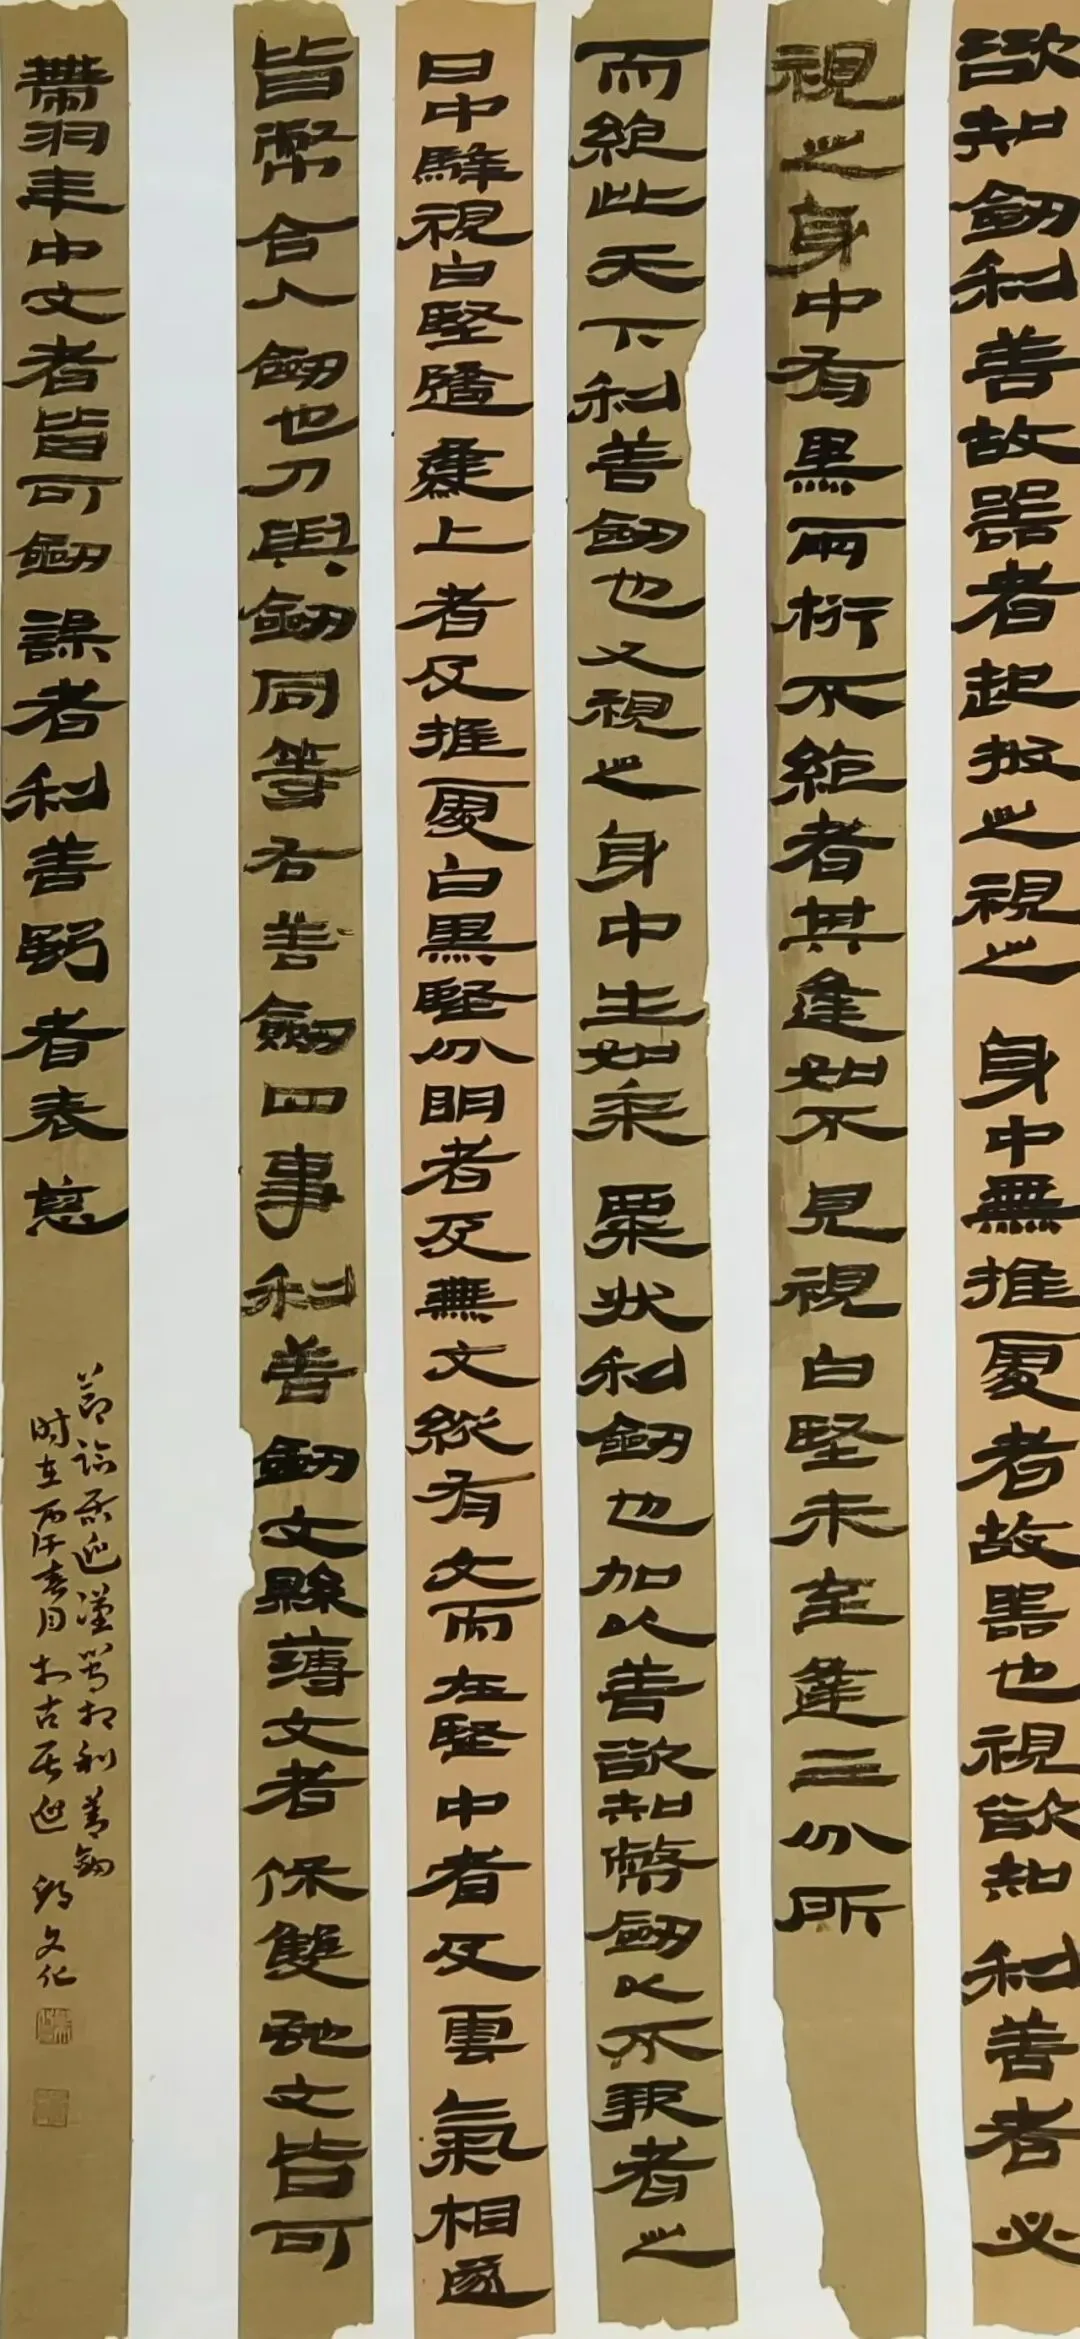 欲知劒利善故器者起拔之視之身中無推處者故器也視欲知利善者必
視之身中有黑兩桁不絕者其逢如不見視白堅未至逢三分所
而絕此天下利善劒也又視之身中生如黍粟狀利劒也加以善欲知幣劒以不報者之
日中騂視白堅隨逢上者及推處白黑堅分明者及無文縱有文而在堅中者及雲氣相遂
皆幣合人劒也刀與劒同等右善劒四事利善劒文縣薄文者保雙蛇文皆可
帶羽圭中文者皆可劒謏者利善強者表恙
節臨居延漢簡相利善劒
时在丙午春月
文化